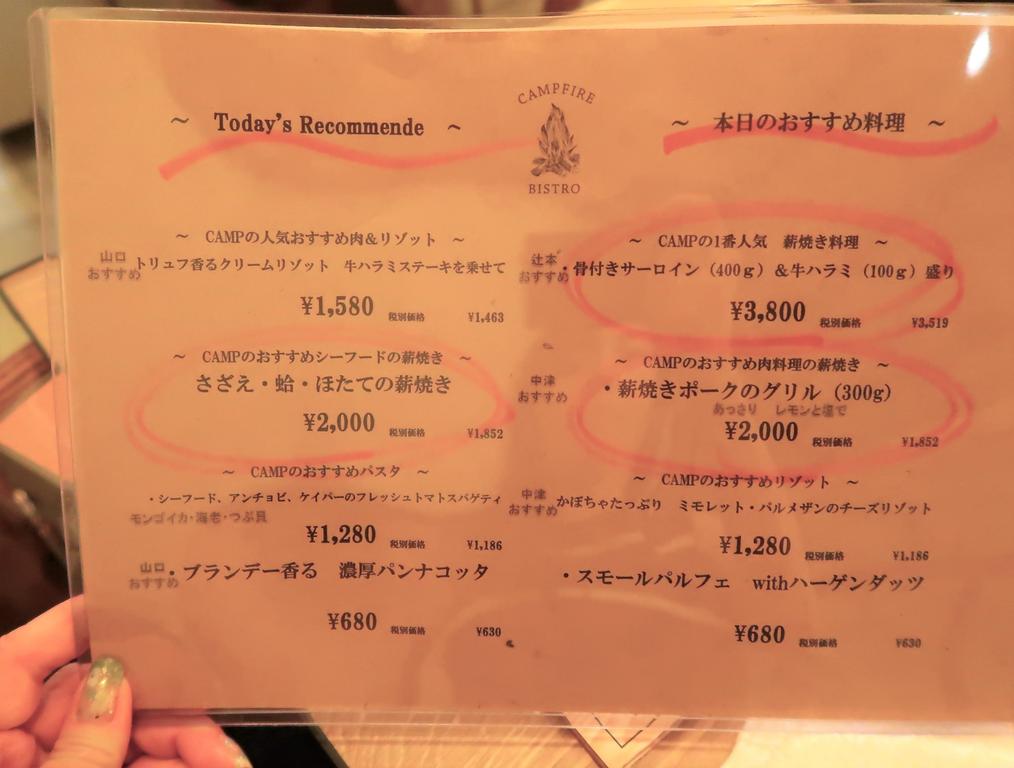 CAMPFIRE
BISTRO
～ Today's Recommende ～
～ CAMPの人気おすすめ肉＆リゾット ～
山口
おすすめ
トリュフ香るクリームリゾット　牛ハラミステーキを乗せて
¥1,580 税別価格 ¥1,463
～ CAMPのおすすめシーフードの薪焼き ～
さざえ・蛤・ほたての薪焼き
¥2,000 税別価格 ¥1,852
～ CAMPのおすすめパスタ ～
・シーフード、アンチョビ、ケイパーのフレッシュトマトスパゲティ
モンゴイカ・海老・つぶ貝
¥1,280 税別価格 ¥1,186
山口
おすすめ
・ブランデー香る　濃厚パンナコッタ
¥680 税別価格 ¥630
～ 本日のおすすめ料理 ～
～ CAMPの1番人気　薪焼き料理 ～
辻本
おすすめ
・骨付きサーロイン（400ｇ）＆牛ハラミ（100ｇ）盛り
¥3,800 税別価格 ¥3,519
～ CAMPのおすすめ肉料理の薪焼き ～
中津
おすすめ
・薪焼きポークのグリル（300g）
あっさり　レモンと塩で
¥2,000 税別価格 ¥1,852
～ CAMPのおすすめリゾット ～
中津
おすすめ
かぼちゃたっぷり　ミモレット・パルメザンのチーズリゾット
¥1,280 税別価格 ¥1,186
・スモールパルフェ　withハーゲンダッツ
¥680 税別価格 ¥630